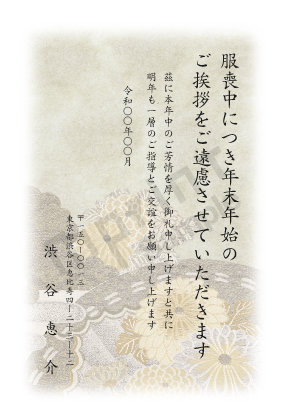 服喪中につき年末年始の
ご挨拶をご遠慮させていただきます
茲に本年中のご芳情を厚く御礼申し上げますと共に
明年も一層のご指導とご交誼をお願い申し上げます
令和〇〇年〇〇月
〒一五〇-〇〇一三
東京都渋谷区恵比寿四-二十三-十二
渋谷恵介